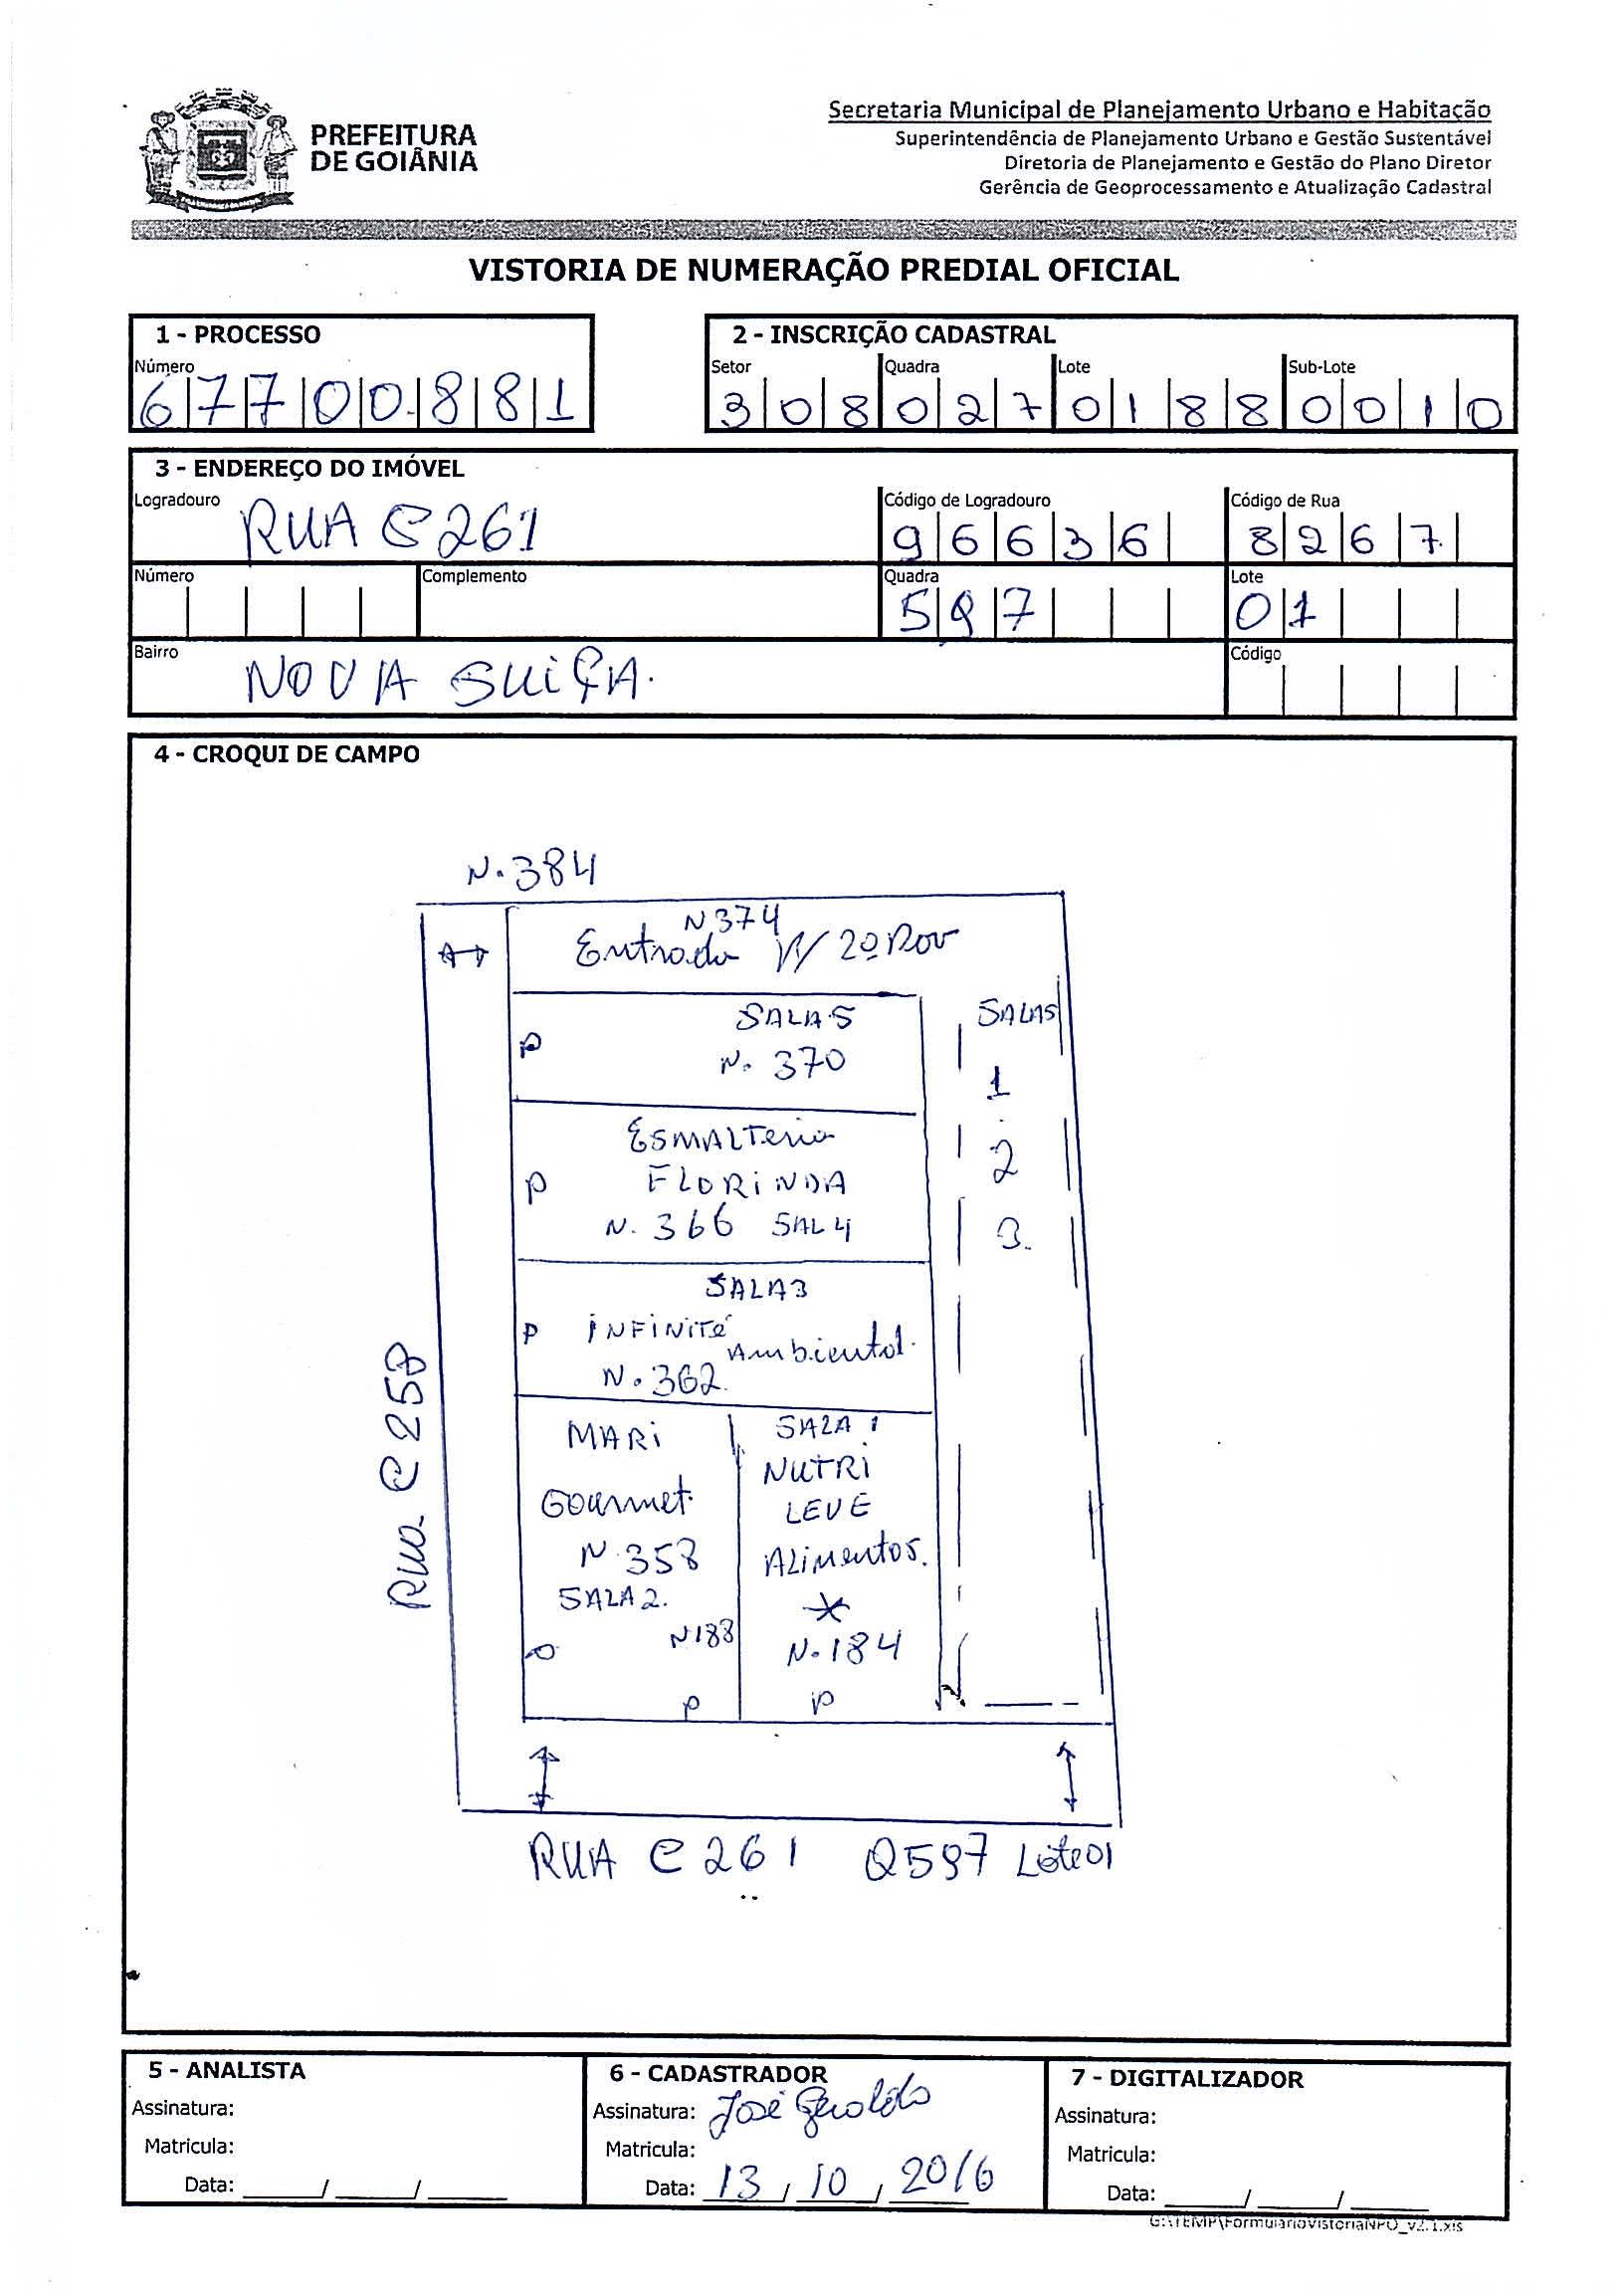 PREFEITURA
DE GOIÂNIA
Secretaria Municipal de Planejamento Urbano e Habitação
Superintendência de Planejamento Urbano e Gestão Sustentável
Diretoria de Planejamento e Gestão do Plano Diretor
Gerência de Geoprocessamento e Atualização Cadastral
VISTORIA DE NUMERAÇÃO PREDIAL OFICIAL
1 - PROCESSO
Número
67700881
2 - INSCRIÇÃO CADASTRAL
Setor Quadra Lote Sub-Lote
308 027 0188 0010
3 - ENDEREÇO DO IMÓVEL
Logradouro Código de Logradouro Código de Rua
RUA C 261 96636 8267
Número Complemento Quadra Lote
597 01
Bairro Código
NOVA SUIÇA.
4 - CROQUI DE CAMPO
N. 384
N 374
Entrada P/ 2º Pav
SALA 5
P
N. 370
SALAS
1
2
3.
ESMALTeria
P FLORiNDA
N. 366 SAL 4
SALA 3
P iNFiNiTé Ambiental.
N. 362.
MARi
Gourmet.
N. 358
SALA 2.
N 188
P
SALA 1
NUTRi
LEVE
ALimentos.
N. 184
P
Rua C 258
RUA C 261 Q 597 Lote 01
5 - ANALISTA
Assinatura:
Matricula:
Data: ____/____/____
6 - CADASTRADOR
Assinatura: José Geraldo
Matricula:
Data: 13 / 10 / 2016
7 - DIGITALIZADOR
Assinatura:
Matricula:
Data: ____/____/____
G:\TEMP\FormularioVistoriaNPO_v2.1.xls